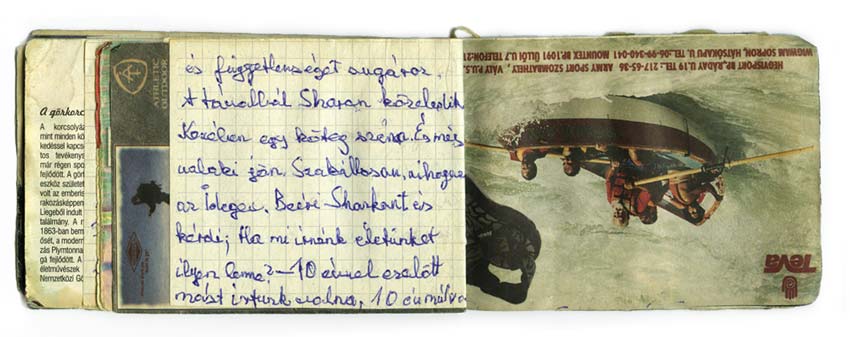 A görkorc
A korcsolyáz
mint minden kö
kedéssel kapcs
tos tevékenys
már régen spo
fejlődött. A görk
eszköz születet
volt az emberis
rakozásképpen
Liegeből indult
találmány. A r
1863-ban bem
ősét, a modern
zás Plymtonna
gá fejlődött. A
életművészek
Nemzetközi Gö
ATHLETIC
OUTDOOR
és függetlenséget sugároz.
A távolból Sharan közeledik
Kezében egy köteg széna. És még
valaki jön. Szabállosan, nihogva
az Idegen. Beéri Sharkant és
kérdi; Ha mi írnánk életünket
ilyen lenne? — 10 évvel ezelőtt
mást írtunk volna, 10 év múlva
HEGYISPORT BP., RÁDAY U.19 TEL.: 217-65-36 ARMY SPORT SZOMBATHELY, VÁLY P.U.5.
WIGWAM SOPRON, HÁTSÓKAPU U. TEL.:06-99-340-041 MOUNTEX BP.1091 ÜLLŐI U.7 TELEFON:21
Teva